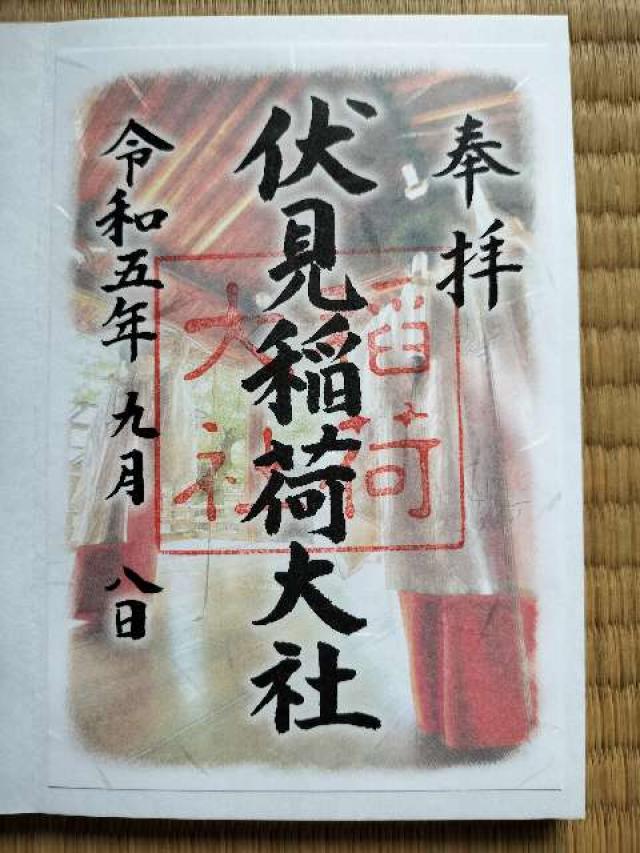 奉拝
伏見稲荷大社
稲荷
大社
令和五年九月八日